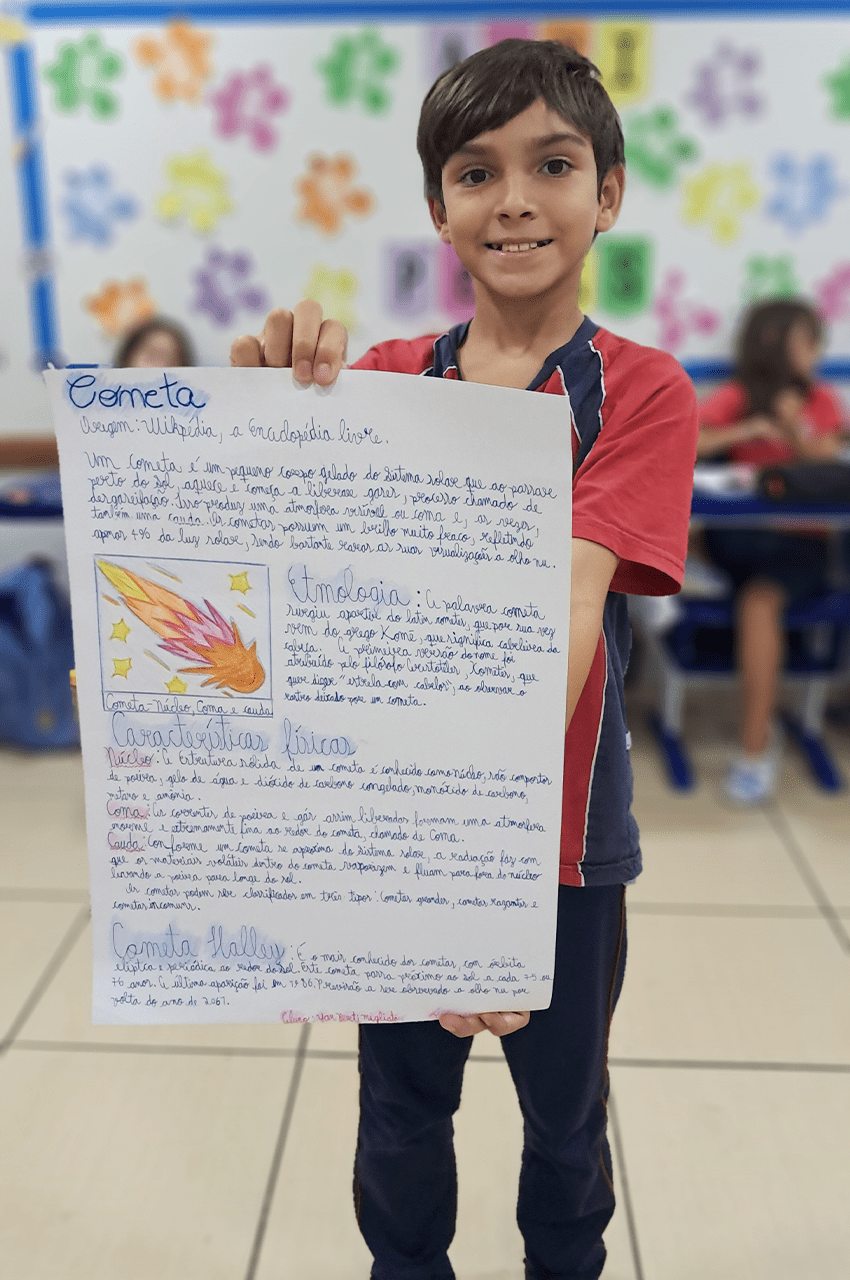 Cometa
Origem: Wikpédia, a Enciclopédia livre.
Um cometa é um pequeno corpo gelado do sistema solar que ao passar
perto do Sol, aquece e começa a liberar gases, processo chamado de
desgaseifação. Isso produz uma atmosfera visível ou coma e, as vezes,
também uma cauda. Os cometas possuem um brilho muito fraco, refletindo
apenas 4% da luz solar, sendo bastante raras as suas visualizações a olho nu.
Etmologia: A palavra cometa
surgiu apartir do latim cometes, que por sua vez
vem do grego Komē, que significa cabeleira da
cabeça. A primeira versão do nome foi
atribuido pelo filósofo Aristóteles, Kometes, que
quer dizer "estrela com cabelos", ao observar o
rastro deixado por um cometa.
Cometa-Núcleo, Coma e cauda
Características físicas
Núcleo: A Estrutura sólida de um cometa é conhecido como núcleo, são compostos
de poeira, gelo de água e dióxido de carbono congelado, monóxido de carbono,
metano e amônia.
Coma: As correntes de poeira e gás assim liberadas formam uma atmosfera
enorme e extremamente fina ao redor do cometa, chamado de Coma.
Cauda: Conforme um cometa se aproxima do Sistema solar, a radiação faz com
que os materiais voláteis dentro do cometa vaporizem e fluam para fora do núcleo
levando a poeira para longe do sol.
Os cometas podem ser classificados em três tipos: Cometas grandes, cometas razantes e
cometas incomuns.
Cometa Halley: É o mais conhecido dos cometas, com órbita
elíptica e periódica ao redor do Sol. Este cometa passa próximo ao sol a cada 75 ou
76 anos. A última aparição foi em 1986. Previsão a ser observado a olho nu por
volta do ano de 2061.
Aluno: Yan